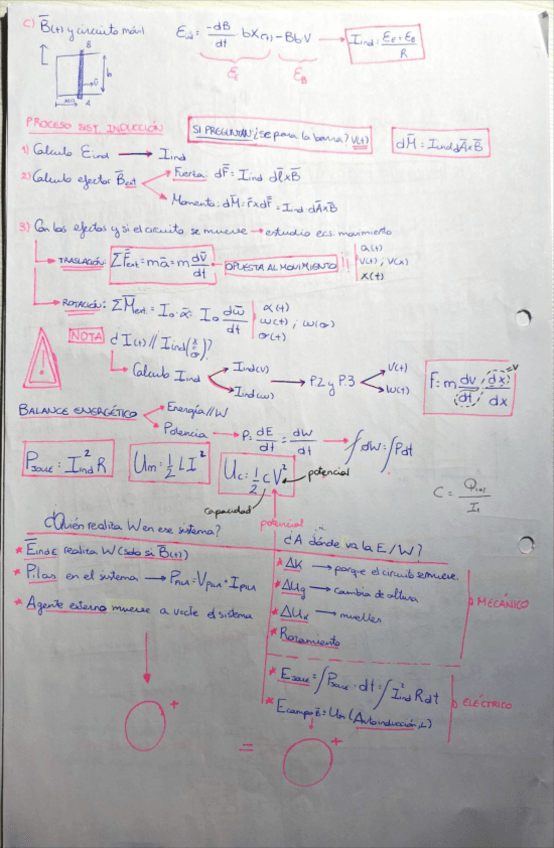 C) B̄(t) y circuito móvil
Eind = -dB/dt · b x(t) - B b v → Iind = (EE + EB)/R
EE EB
B
b
x(t) A
PROCESO SIST. INDUCCIÓN
SI PREGUNTAN: ¿se para la barra? v(t)
dM̄ = Iind dĀ x B̄
1) Calculo Eind → Iind
2) Calculo efectos B̄ext
Fuerza: dF̄ = Iind dl̄ x B̄
Momento: dM̄ = r̄ x dF̄ = Iind dĀ x B̄
3) Con los efectos y si el circuito se mueve → estudio ecs. movimiento
TRASLACIÓN: ΣF̄ext = mā = m dv̄/dt OPUESTA AL MOVIMIENTO !!
a(t)
v(t), v(x)
x(t)
ROTACIÓN: ΣM̄ext = I₀ · ᾱ = I₀ dω̄/dt
α(t)
ω(t), ω(σ)
σ(t)
! NOTA ¿I(t) // Iind(x/σ)?
Calculo Iind
Iind(v)
Iind(ω)
→ P.2 y P.3
v(t)
ω(t)
F = m dv/dt · dx/dx = v
BALANCE ENERGÉTICO
Energía // W
Potencia → P = dE/dt = dW/dt → ∫dW = ∫Pdt
Pjoule = I²ind R
Um = 1/2 L I²
Uc = 1/2 C V²
potencial
capacidad
potencial
¿Quién realiza W en ese sistema?
* Eind E realiza W (solo si B̄(t))
* Pilas en el sistema → Ppila = Vpila · Ipila
* Agente externo mueve a vcte el sistema
+
=
¿A dónde va la E/W?
* ΔK → porque el circuito se mueve
* ΔUg → cambia de altura
* ΔUk → muelles
* Rozamiento
MECÁNICO
* Ejoule = ∫Pjoule · dt = ∫I²ind R dt
* Ecampo B̄ = Um (Autoinducción, L)
ELÉCTRICO
+